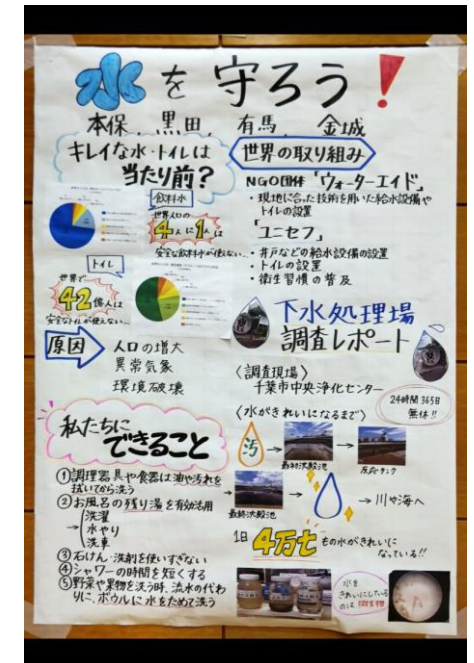 水を守ろう！
本保、黒田、有馬、金城
キレイな水・トイレは
当たり前？
飲料水
世界人口の
4人に1人は
安全な飲料水が使えない…
トイレ
世界で
42億人は
安全なトイレが使えない…
原因
人口の増大
異常気象
環境破壊
私たちに
できること
①調理器具や食器は油や汚れを
拭いてから洗う
②お風呂の残り湯を有効活用
洗濯
水やり
洗車
③石けん・洗剤を使いすぎない
④シャワーの時間を短くする
⑤野菜や果物を洗う時、流水の代わ
りに、ボウルに水をためて洗う
世界の取り組み
NGO団体「ウォーターエイド」
・現地に合った技術を用いた給水設備や
トイレの設置
「ユニセフ」
・井戸などの給水設備の設置
・トイレの設置
・衛生習慣の普及
下水処理場
調査レポート
〈調査現場〉
千葉市中央浄化センター
24時間365日
無休!!
〈水がきれいになるまで〉
汚
最初沈殿池
反応タンク
最終沈殿池
川や海へ
1日4万t もの水がきれいに
なっている!!
水を
きれいにしている
のは微生物